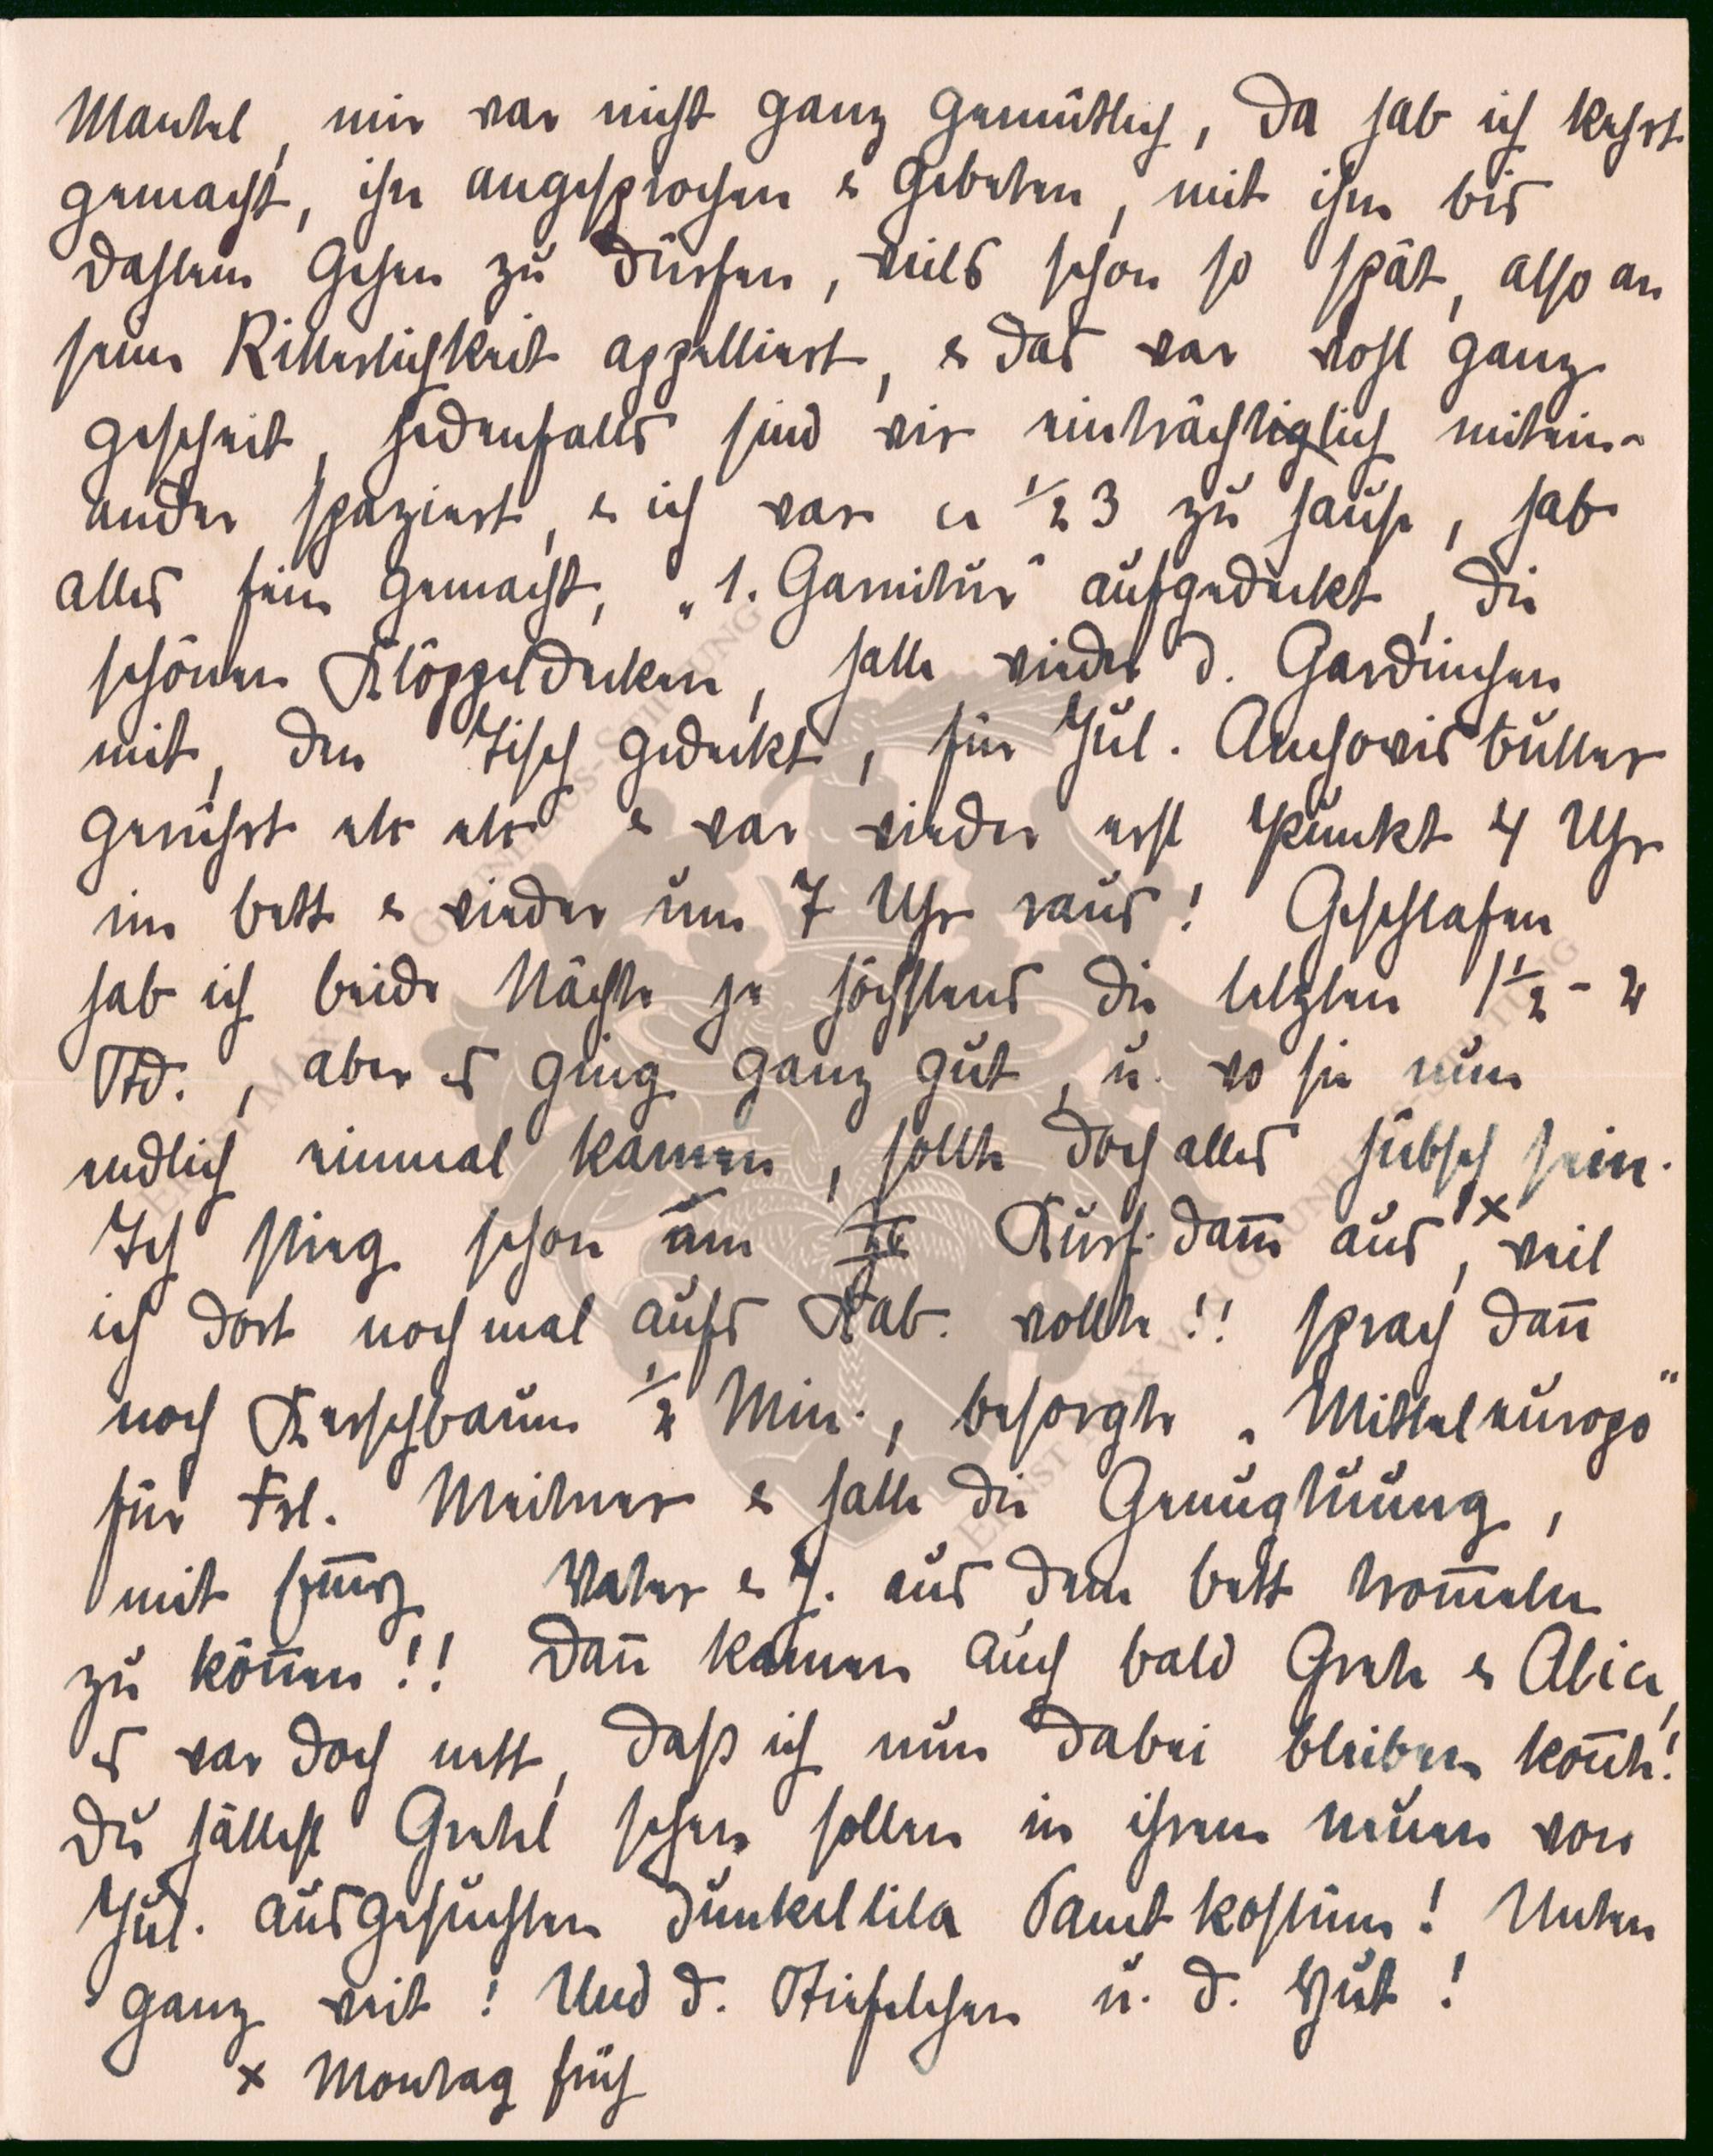 Mantel, mir war nicht ganz gemütlich, da hab ich kehrt
gemacht, ihn angesprochen & gebeten, mit ihm bis
Dahlem gehen zu dürfen, weils schon so spät, also an
seine Ritterlichkeit appelliert, & das war wohl ganz
gescheit, jedenfalls sind wir einträchtiglich mitein-
ander spaziert, & ich war ca ½ 3 zu hause, hab
alles fein gemacht, „1. Garnitur“ aufgedeckt, die
schönen Klöppeldecken, hatte wieder d. Gardinchen
mit, den Tisch gedeckt, für Jul. Anchovisbutter
gerührt etc etc & war wieder erst Punkt 4 Uhr
im bett & wieder um 7 Uhr raus! Geschlafen
hab ich beide Nächte je höchstens die letzten 1½ - 2
Std., aber es ging ganz gut, u. wo sie nun
endlich einmal kamen, sollte doch alles hübsch sein.
Ich stieg schon am Kurf. damm aus, x weil
ich dort nochmal aufs Kab. wollte!! sprach dann
noch Kerschbaum ½ Min., besorgte „Mitteleuropa“
für Frl. Meitner & hatte die Genugtuung,
mit Vater & J. aus dem bett trommeln
zu können!! Dann kamen auch bald Grete & Alice,
es war doch nett, daß ich nun dabei bleiben konnte!
Du hättest Gretel sehen sollen in ihrem neuen von
Jul. ausgesuchten dunkellila Samtkostüm! Unten
ganz weit! Und d. Stiefelchen u. d. Hut!
x Montag früh